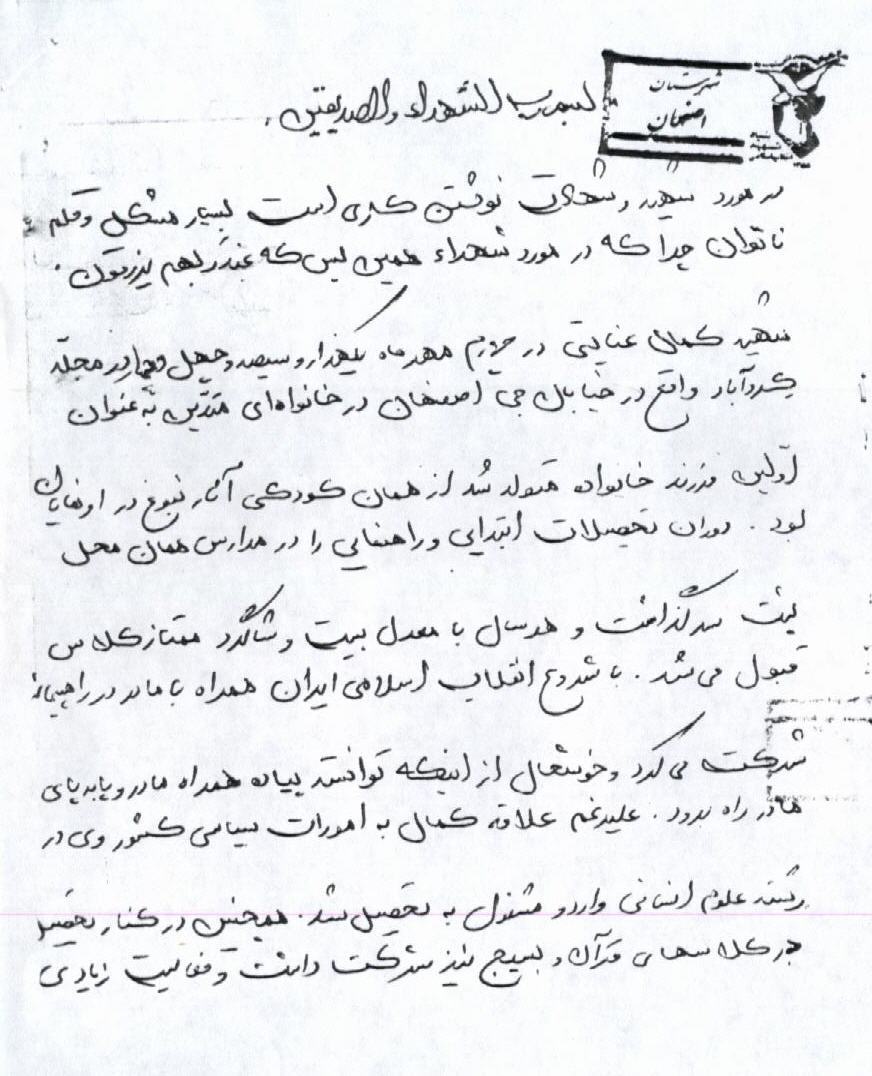 شهرستان
اصفهان
بسم رب الشهداء والصدیقین
در مورد شهید و شهادت نوشتن کاری است بسیار مشکل و قلم
ناتوان چرا که در مورد شهداء همین بس که عند ربهم یرزقون.
شهید کمال عنایتی در چهارم مهر ماه یکهزار و سیصد و چهل و چهار در محله
کردآباد واقع در خیابان جی اصفهان در خانواده‌ای متدین به عنوان
اولین فرزند خانواده متولد شد از همان کودکی آثار نبوغ در او نمایان
بود. دوران تحصیلات ابتدایی و راهنمایی را در مدارس همان محل
پشت سر گذاشت و هر سال با معدل بیست و شاگرد ممتاز کلاس
قبول می شد. با شروع انقلاب اسلامی ایران همراه با مادر در راهپیمائی
شرکت می کرد و خوشحال از اینکه توانسته پیاده همراه مادر و پابه پای
مادر راه برود. علیرغم علاقه کمال به امورات سیاسی کشور وی در
رشته علوم انسانی وارد و مشغول به تحصیل شد. همچنین در کنار تحصیل
در کلاسهای قرآن و بسیج نیز شرکت داشت و فعالیت زیادی